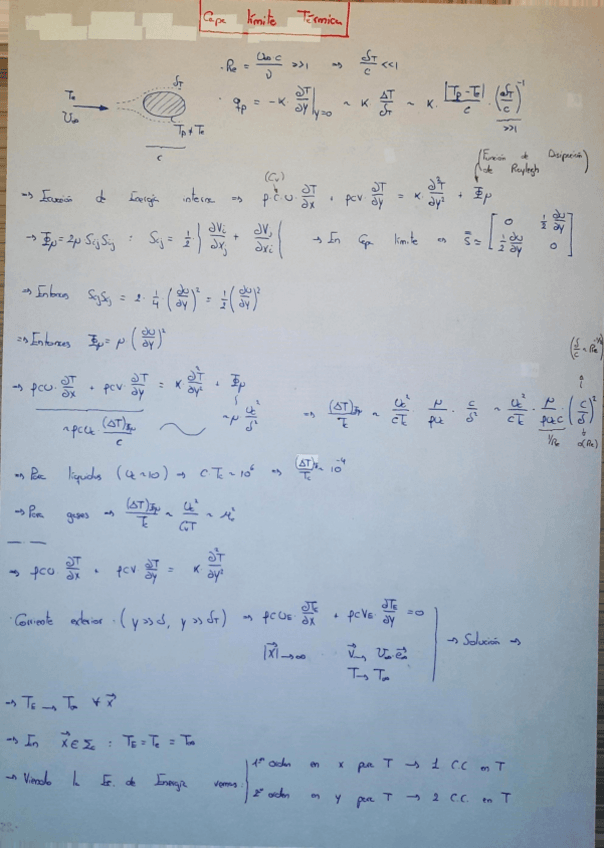 Capa límite Térmica
· Re = U∞ c / ν >> 1 ⇒ δT / c << 1
T∞
U∞
δT
Tp ≠ Te
c
· qp = -K ∂T/∂y |y=0 ~ K ΔT/δT ~ K · |Tp - Te| / c · (δT/c)^-1
>>1
(Función de Disipación de Rayleigh)
(Cv)
⇒ Ecuación de Energía interna ⇒ ρ c u · ∂T/∂x + ρ c v · ∂T/∂y = K ∂²T/∂y² + Φμ
⇒ Φμ = 2μ Sij Sij : Sij = 1/2 { ∂Vi/∂xj + ∂Vj/∂xi } → En Capa límite ⇒ S̿ ≈ [ 0 1/2 ∂u/∂y
1/2 ∂u/∂y 0 ]
⇒ Entonces Sij Sij = 2 · 1/4 · (∂u/∂y)² = 1/2 (∂u/∂y)²
⇒ Entonces Φμ = μ (∂u/∂y)²
(δ/c ~ Re^-1/2)
⇒ ρcu · ∂T/∂x + ρcv · ∂T/∂y = K ∂²T/∂y² + Φμ
~ρcUe (ΔT)Φμ / c
~μ Ue²/δ²
⇒ (ΔT)Φμ / Te ~ Ue²/cTe · μ/ρUe · c/δ² ~ Ue²/cTe · μ/ρUec · (c/δ)²
1/Re
o(Re)
⇒ Para líquidos (Ue ~ 10) → c Te ~ 10⁶ ⇒ (ΔT)Φμ / Te ~ 10⁻⁴
⇒ Para gases ⇒ (ΔT)Φμ / Te ~ Ue² / CvT ~ Me²
⇒ ρcu · ∂T/∂x + ρcv ∂T/∂y = K ∂²T/∂y²
· Corriente exterior · (y >> δ, y >> δT) ⇒ ρcuE · ∂TE/∂x + ρcvE · ∂TE/∂y = 0
|x⃗| → ∞ v⃗ → U∞ · e⃗∞
T → T∞
→ Solución →
⇒ TE → T∞ ∀ x⃗
→ En x⃗ ∈ Σc : TE = Te = T∞
→ Viendo la Ec. de Energía vemos
1er orden en x por T → 1 C.C. en T
2º orden en y por T → 2 C.C. en T